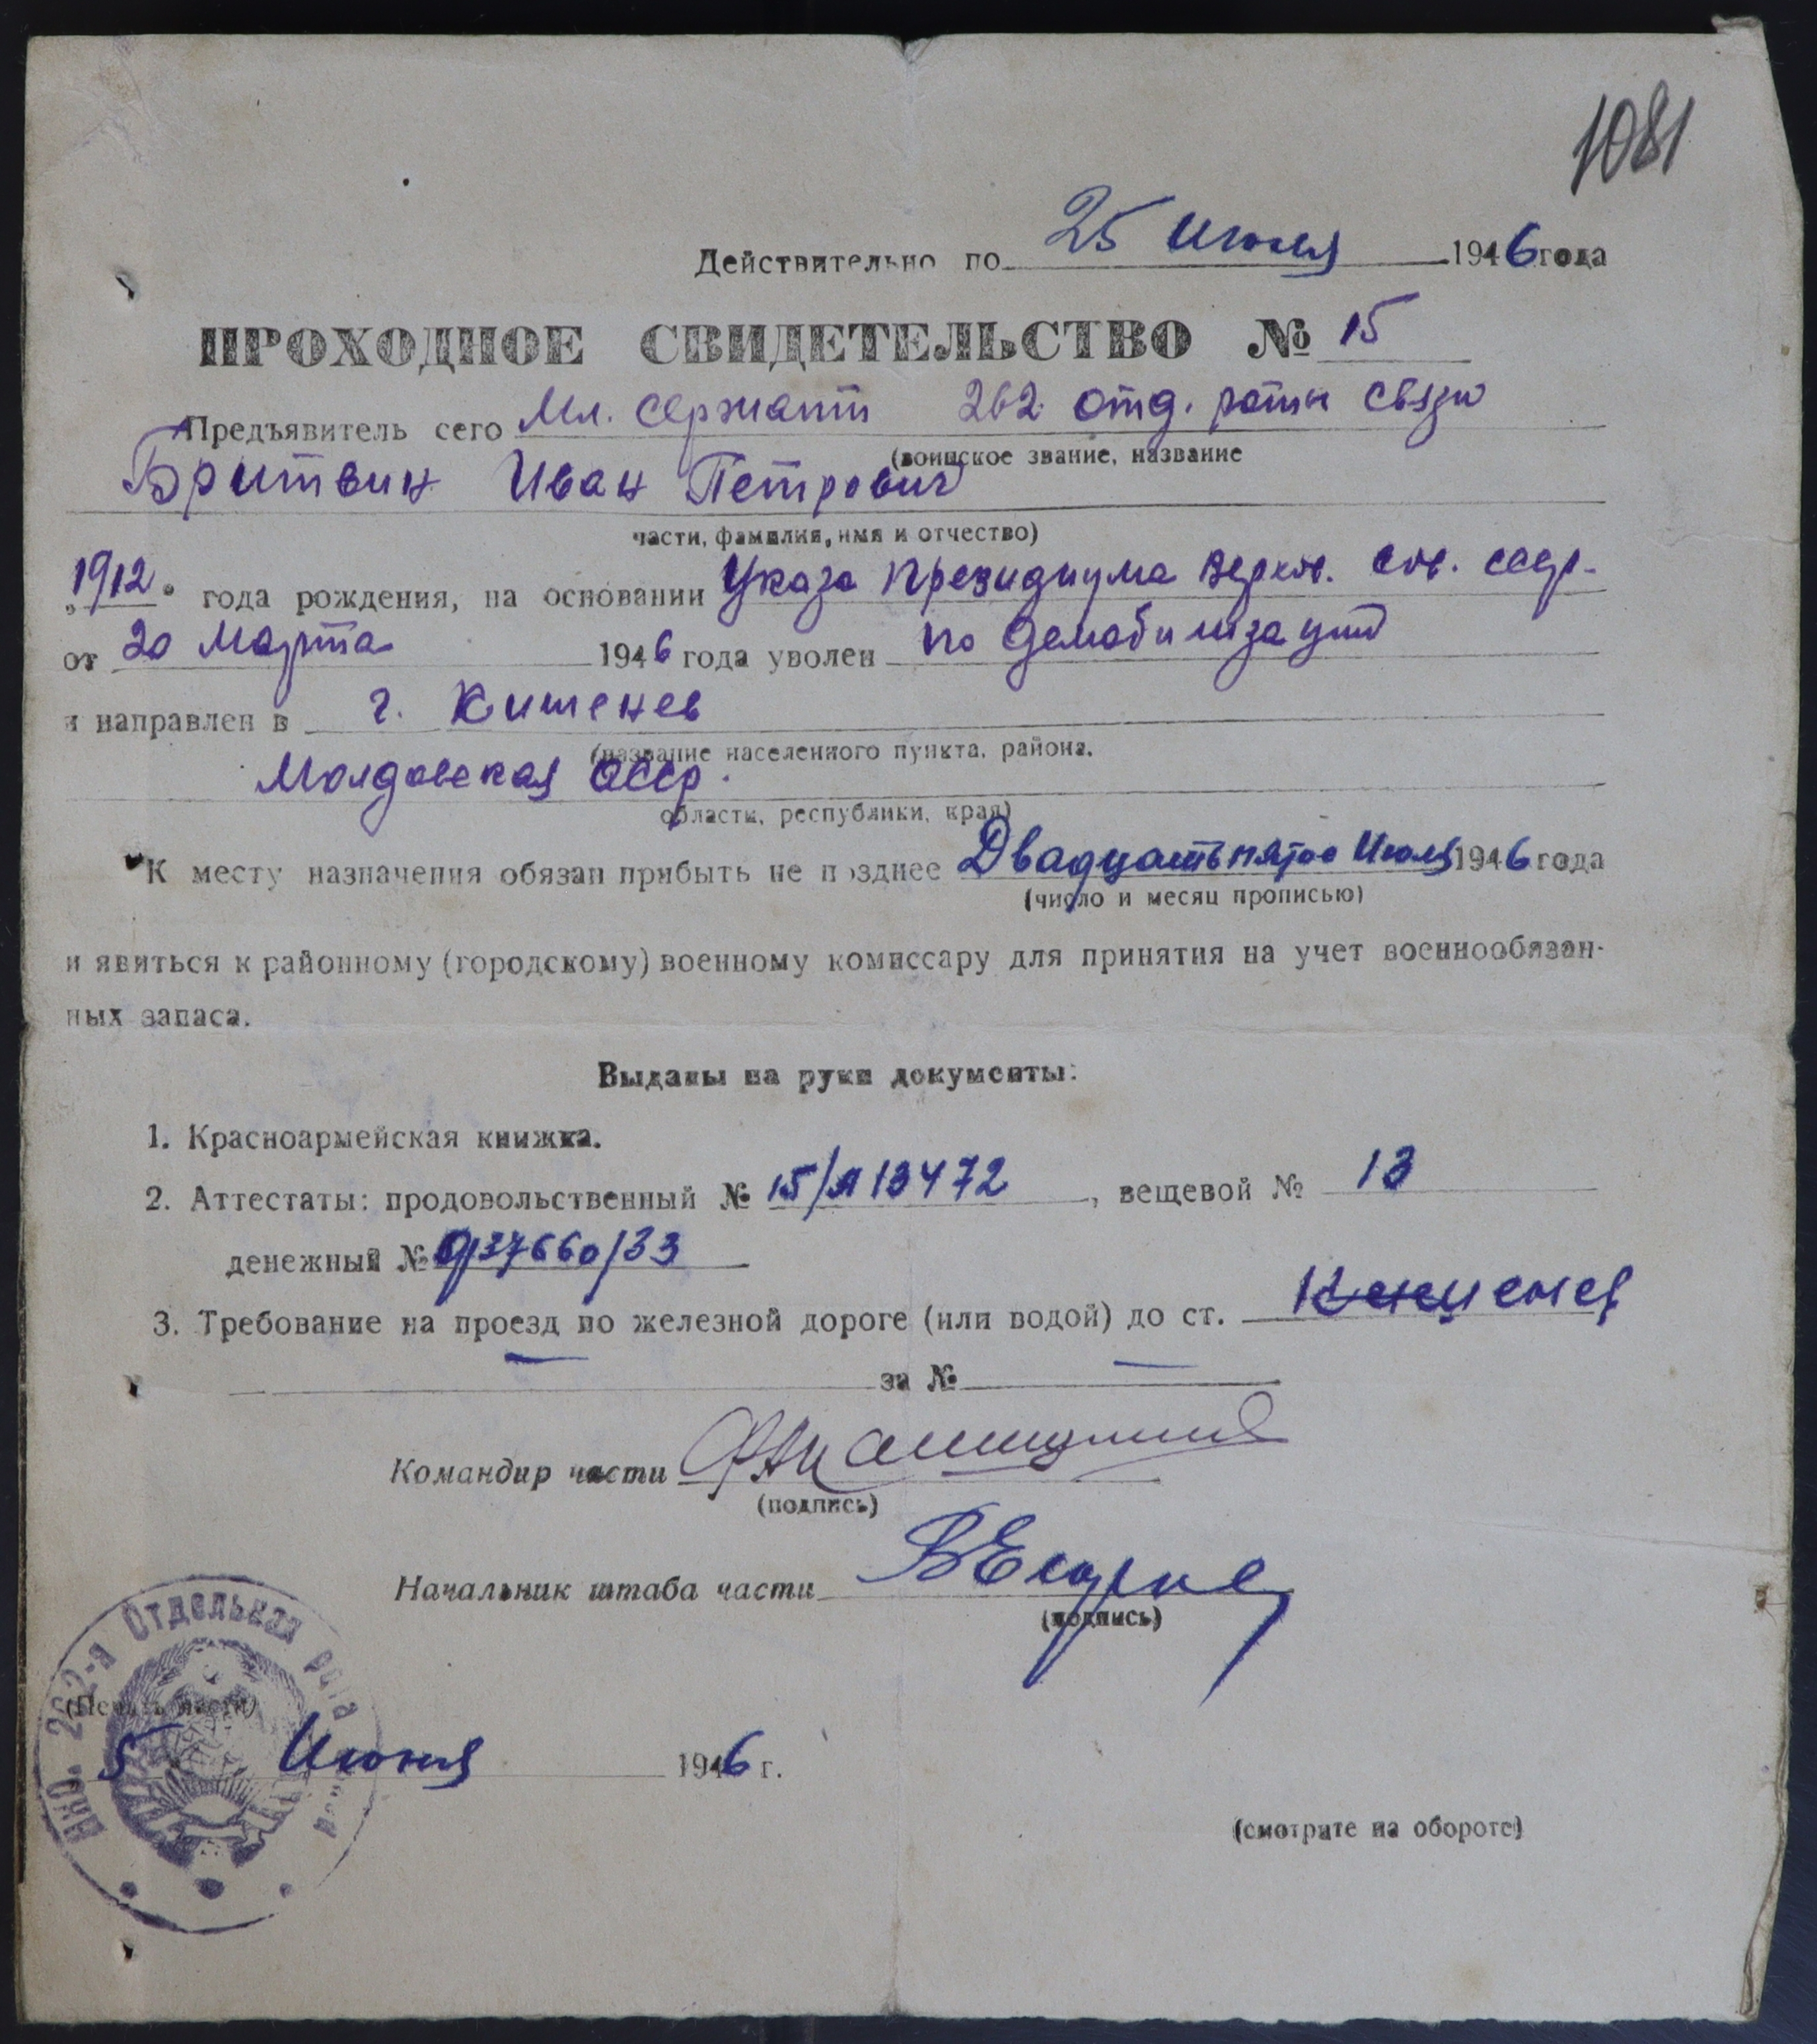 1081
Действительно по 25 Июня 1946 года
ПРОХОДНОЕ СВИДЕТЕЛЬСТВО № 15
Предъявитель сего Мл. сержант 262 отд. роты связи
(воинское звание, название
Бритвин Иван Петрович
части, фамилия, имя и отчество)
„1912" года рождения, на основании Указа Президиума Верхов. Сов. ссср.
от 20 Марта 1946 года уволен по демобилизации
и направлен в г. Кишенев
(название населенного пункта, района,
Молдавская ССср.
области, республики, края)
К месту назначения обязан прибыть не позднее Двадцать пятое Июня 1946 года
(число и месяц прописью)
и явиться к районному (городскому) военному комиссару для принятия на учет военнообязан-
ных запаса.
Выданы на руки документы:
1. Красноармейская книжка.
2. Аттестаты: продовольственный № 15/Я13472, вещевой № 13
денежный № 0/37660/33
3. Требование на проезд по железной дороге (или водой) до ст. Кишенев
— за № —
Командир части
(подпись)
Начальник штаба части
(подпись)
НКО. 262-я Отдельная рота связи
(Печать части)
5 Июня 1946 г.
(смотрите на обороте)